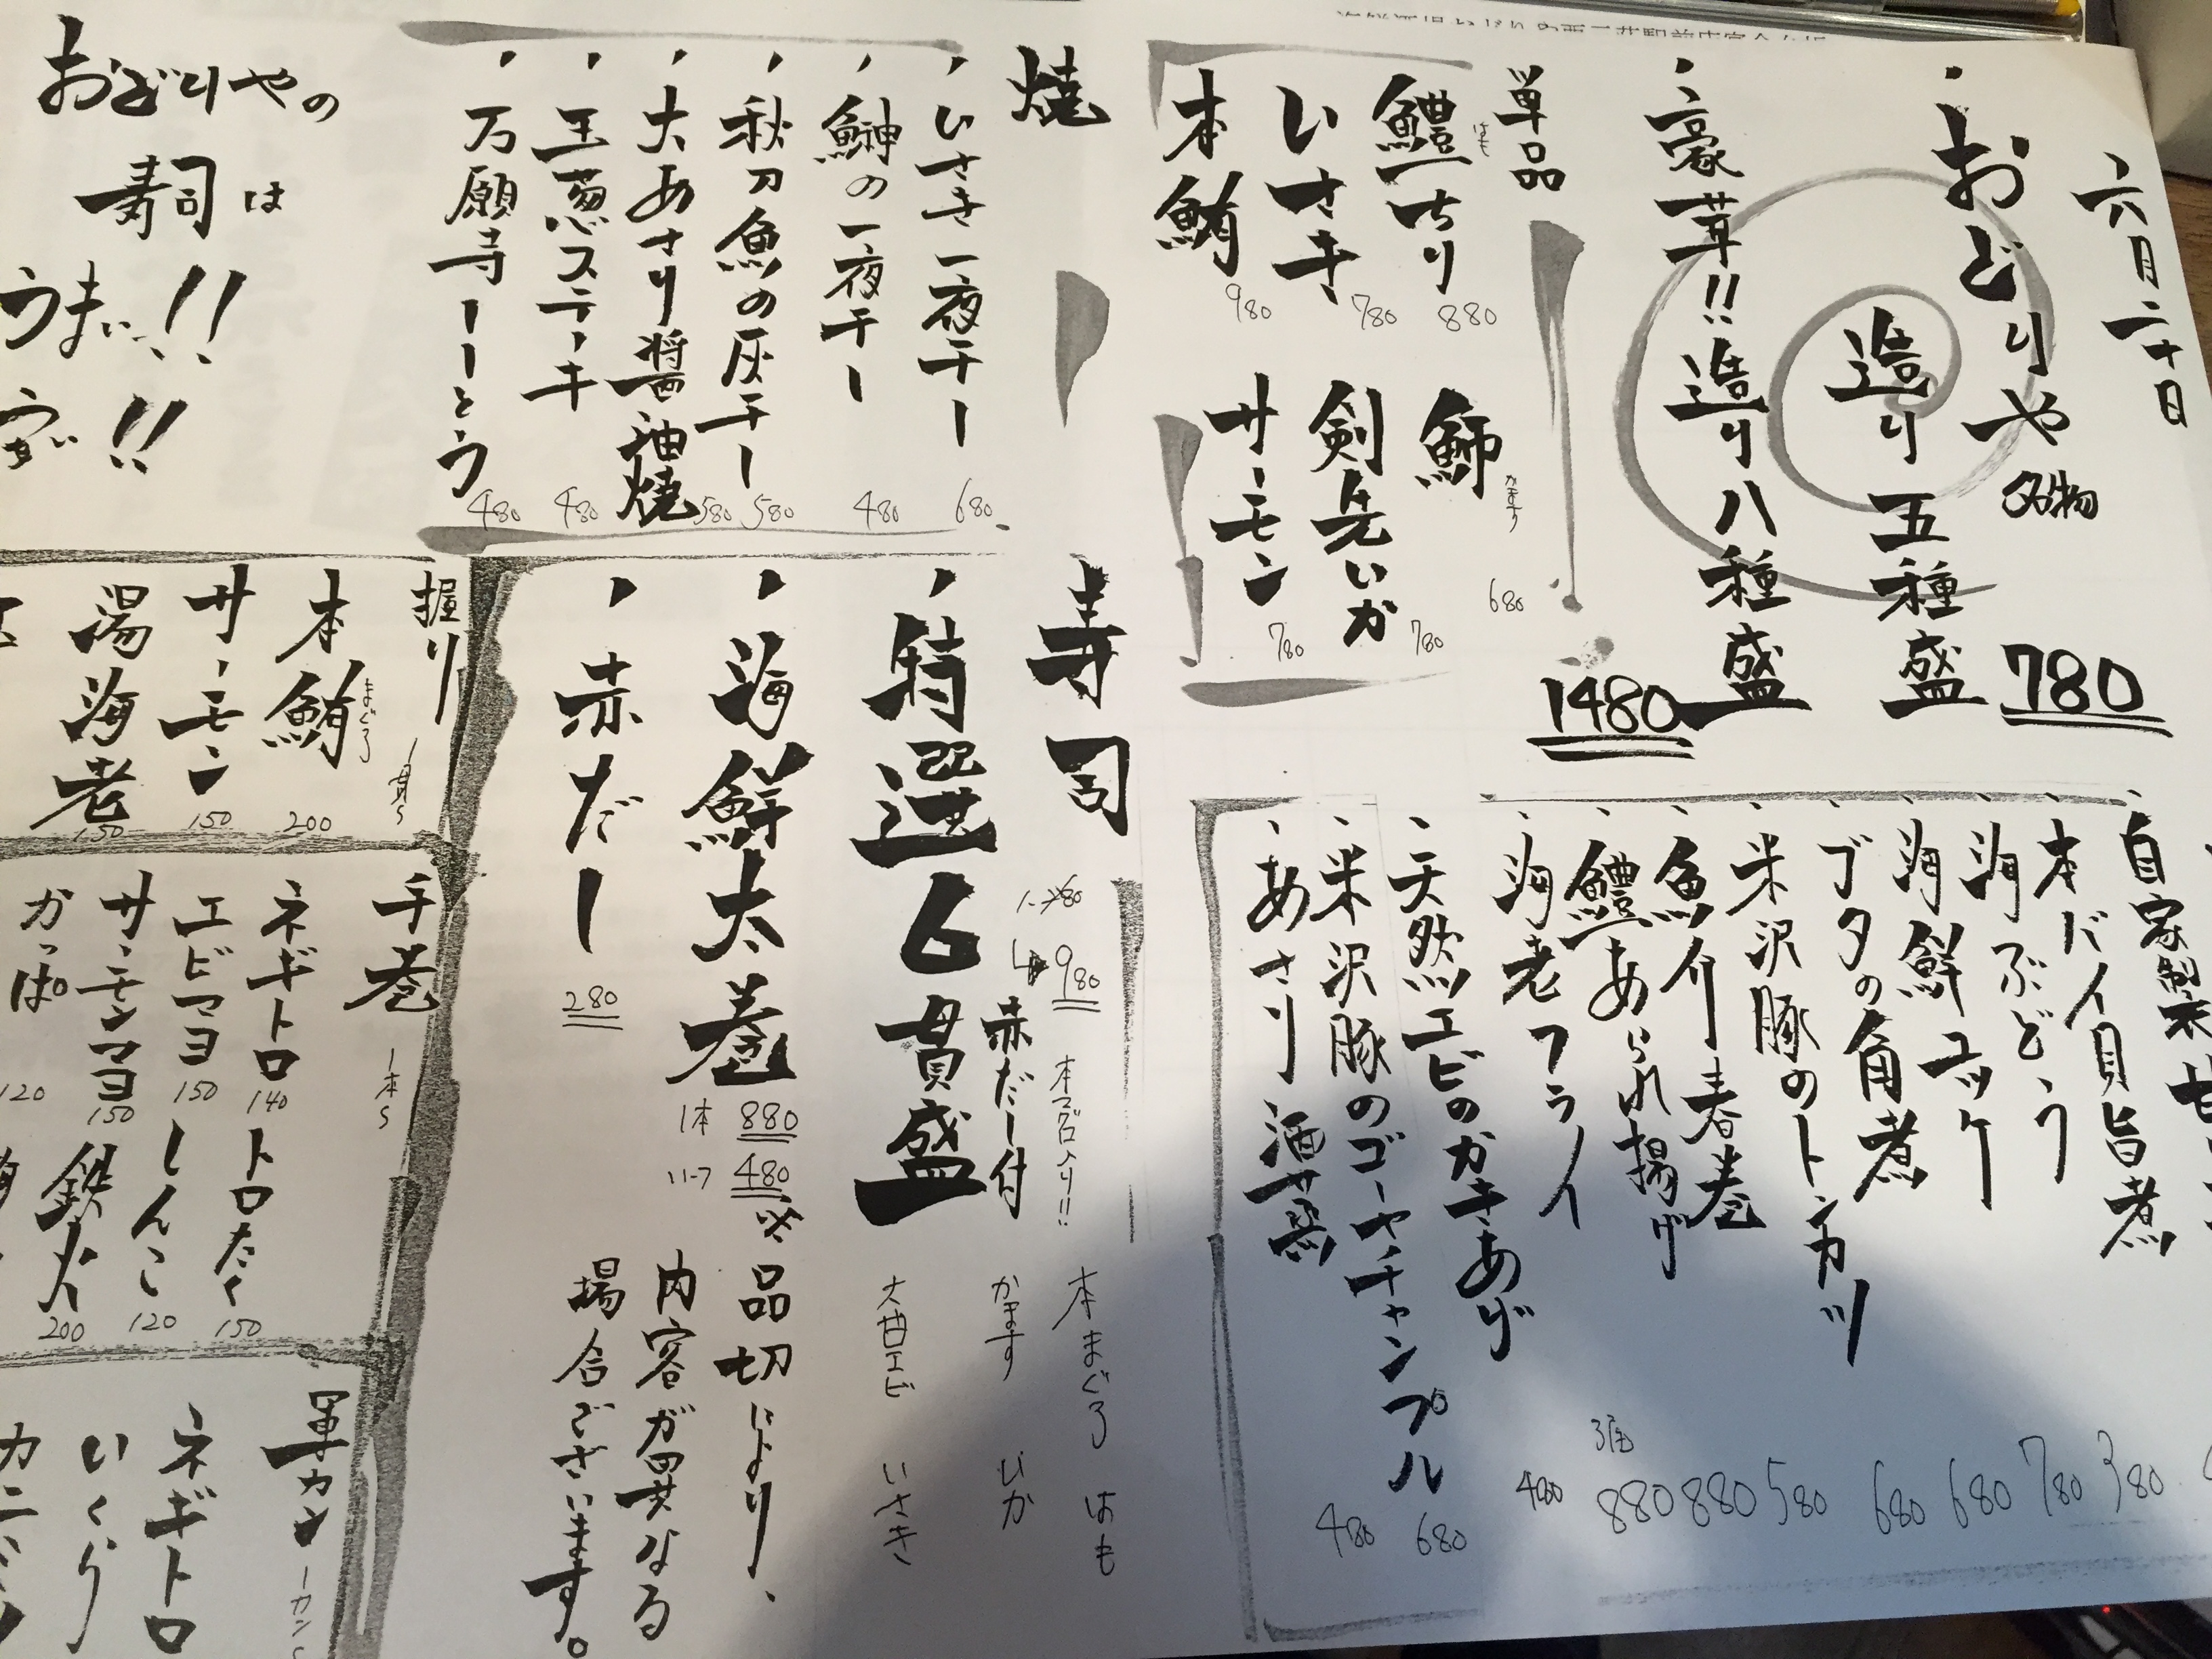 六月二十日
・おどりや名物
造り五種盛 780
・豪華!!造り八種盛 1480
単品
鱧ちり 880
はも
いさき 780
本鮪 980
鰤 680
剣先いか 780
サーモン 780
自家製
・本バイ貝旨煮 380
・海ぶどう 780
・海鮮ユッケ 680
・ブタの角煮 680
・米沢豚のトンカツ 580
・魚介春巻 880
・鱧あられ揚げ 880
・海老フライ 480
・天然エビのかきあげ
・米沢豚のゴーヤチャンプル 680
・あさり酒蒸 480
焼
・いさき一夜干し 680
・鰰の一夜干し 480
・秋刀魚の灰干し 580
・大あさり醤油焼 580
・玉葱ステーキ 480
・万願寺とう 480
寿司
・特選6貫盛
980
赤だし付
本マグロ入り!!
本まぐろ はも
かます いか
大甘エビ いさき
・海鮮太巻
1本 880
ハーフ 480
・赤だし 280
※品切により、
内容が異なる
場合でございます。
おどりやの
寿司は
うまい!!
安い!!
握り
1貫
本鮪 200
まぐろ
サーモン 150
湯海老 150
手巻
1本
ネギトロ 140
エビマヨ 150
サーモンマヨ 150
かっぱ 120
トロたく 150
しんこ 120
鉄火 200
軍カン
1カン
ネギトロ
いくら
カニ